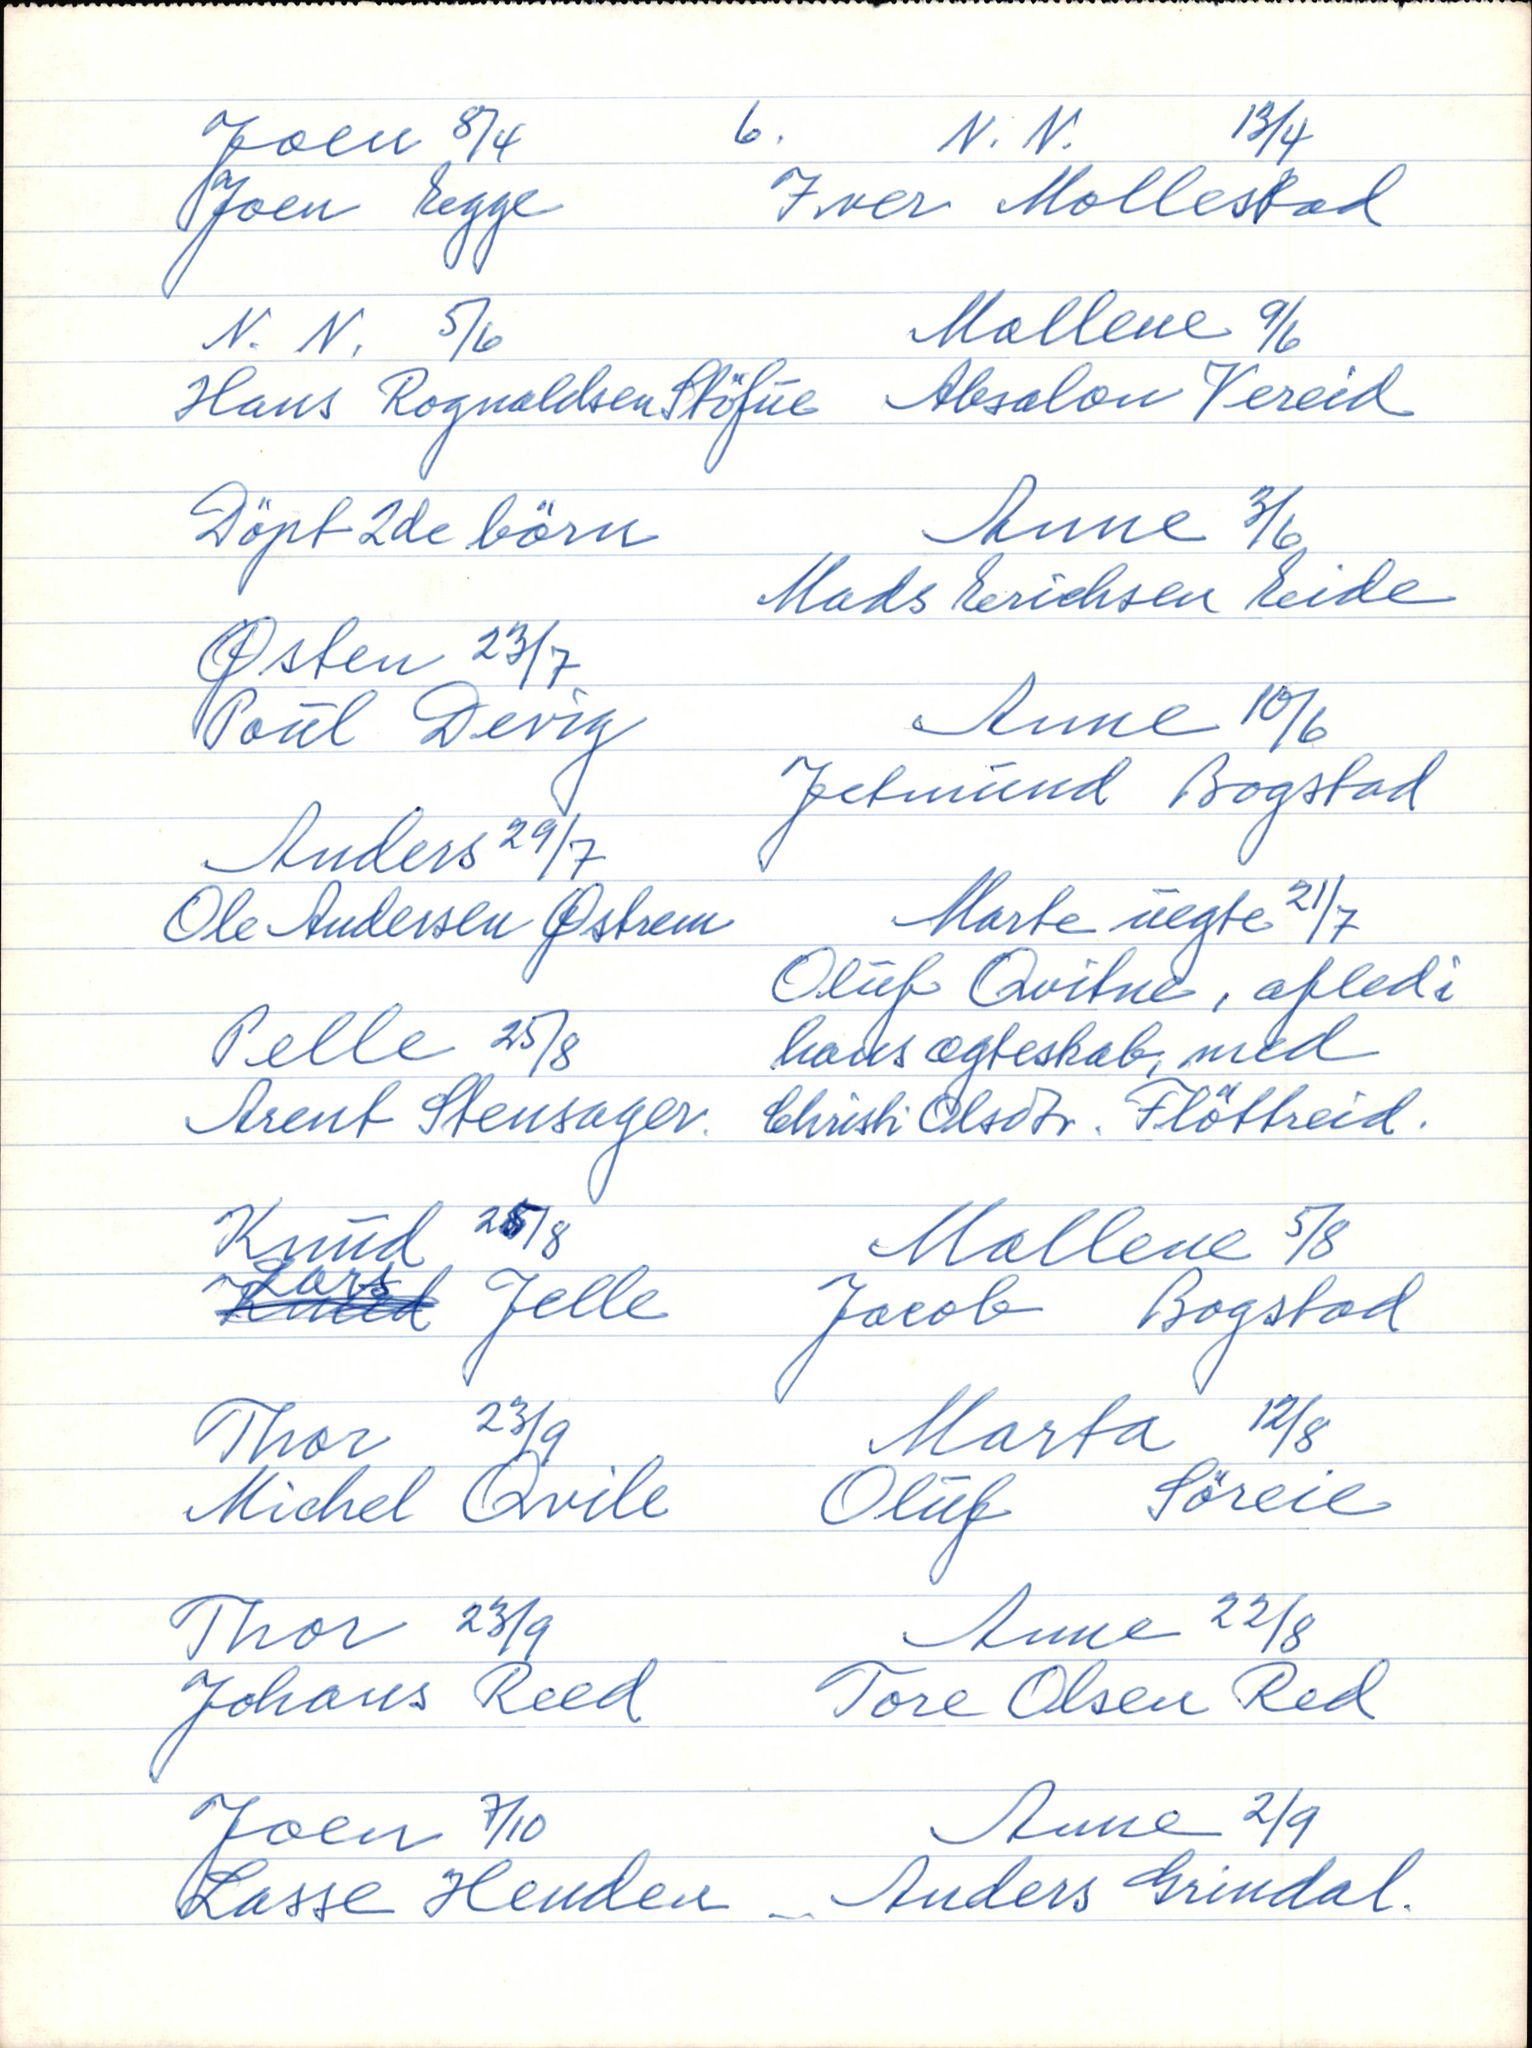 6.
Joen 8/4
Joen Egge
N. N. 5/6
Hans Rognaldsen Stöfne
Döpt 2de börn
Østen 23/7
Poül Devig
Anders 29/7
Ole Andersen Østrem
Pelle 25/8
Arent Stensager.
Knüd 25/8
Lars Jelle
Thor 23/9
Michel Qvile
Thor 23/9
Johans Reed
Joen 7/10
Lasse Henden
N. N. 13/4
Iver Mollestad
Mallene 9/6
Absalon Vereid
Anne 3/6
Mads Erichsen Eide
Anne 10/6
Jetmünd Bogstad
Marte üegte 21/7
Olüf Qvitne, afled i
hans ægteskab, med
Christi Olsdtr. Flöttreid.
Mallene 5/8
Jacob Bogstad
Marta 12/8
Olüf Söreie
Anne 22/8
Tore Olsen Red
Anne 2/9
Anders Grindal.